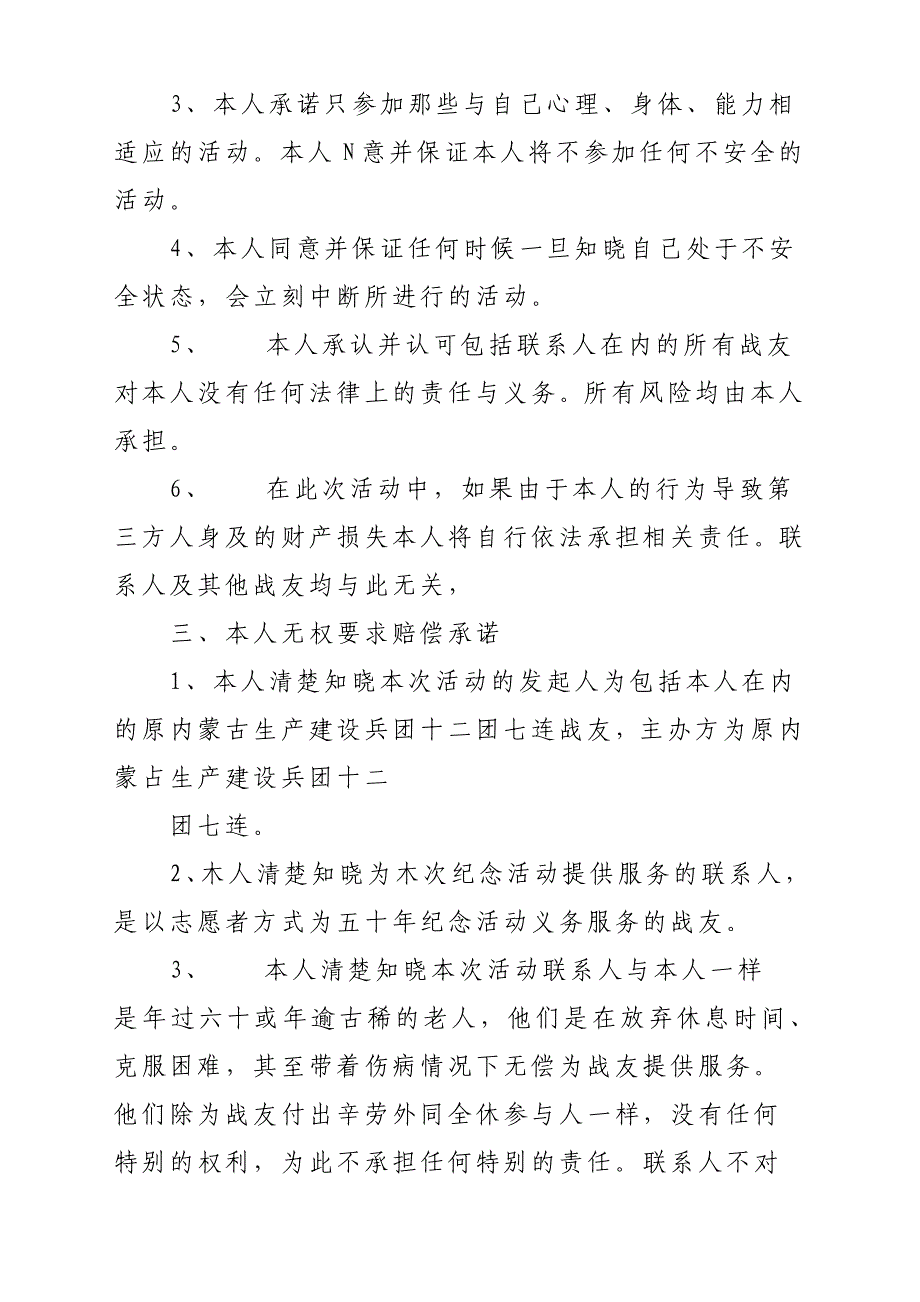 3、本人承诺只参加那些与自己心理、身体、能力相
适应的活动。本人 N 意并保证本人将不参加任何不安全的
活动。
4、本人同意并保证任何时候一旦知晓自己处于不安
全状态，会立刻中断所进行的活动。
5、 本人承认并认可包括联系人在内的所有战友
对本人没有任何法律上的责任与义务。所有风险均由本人
承担。
6、 在此次活动中，如果由于本人的行为导致第
三方人身及的财产损失本人将自行依法承担相关责任。联
系人及其他战友均与此无关，
三、本人无权要求赔偿承诺
1、本人清楚知晓本次活动的发起人为包括本人在内
的原内蒙古生产建设兵团十二团七连战友，主办方为原内
蒙占生产建设兵团十二
团七连。
2、木人清楚知晓为木次纪念活动提供服务的联系人，
是以志愿者方式为五十年纪念活动义务服务的战友。
3、 本人清楚知晓本次活动联系人与本人一样
是年过六十或年逾古稀的老人，他们是在放弃休息时间、
克服困难，其至带着伤病情况下无偿为战友提供服务。
他们除为战友付出辛劳外同全休参与人一样，没有任何
特别的权利，为此不承担任何特别的责任。联系人不对